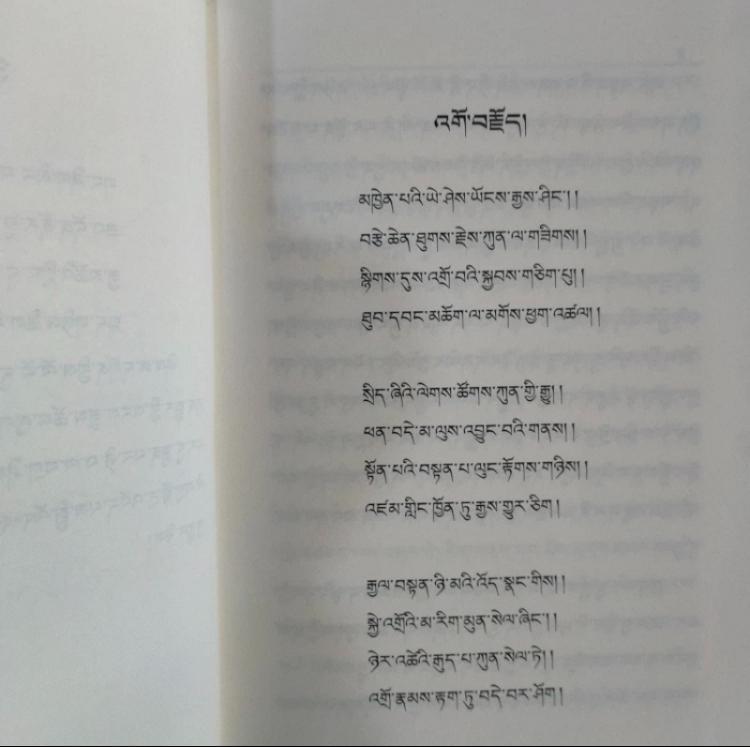 འགོ་བརྗོད།
མཁྱེན་པའི་ཡེ་ཤེས་ཡོངས་རྒྱས་ཤིང་།།
བརྩེ་ཆེན་ཐུགས་རྗེས་ཀུན་ལ་གཟིགས།།
སྙིགས་དུས་འགྲོ་བའི་སྐྱབས་གཅིག་པུ།།
ཐུབ་དབང་མཆོག་ལ་མགོས་ཕྱག་འཚལ།།
སྲིད་ཞིའི་ལེགས་ཚོགས་ཀུན་གྱི་རྒྱུ།།
ཕན་བདེ་མ་ལུས་འབྱུང་བའི་གནས།།
སྟོན་པའི་བསྟན་པ་ལུང་རྟོགས་གཉིས།།
འཛམ་གླིང་ཁྱོན་ཏུ་རྒྱས་གྱུར་ཅིག།
རྒྱལ་བསྟན་ཉི་མའི་འོད་སྣང་གིས།།
སྐྱེ་འགྲོའི་མ་རིག་མུན་སེལ་ཞིང་།།
ཉེར་འཚེའི་རྒུད་པ་ཀུན་སེལ་ཏེ།།
འགྲོ་རྣམས་རྟག་ཏུ་བདེ་བར་ཤོག།